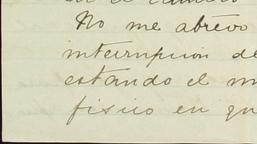 No me abrevo
interrupcion de
estando el m
fisico en qu